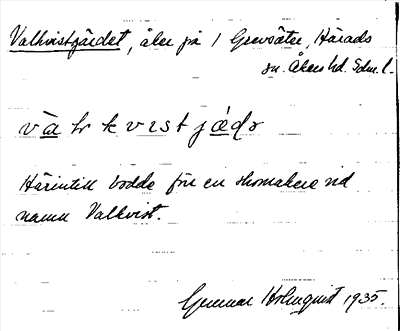 Valkvistgärdet, åker på 1 Grevsäter, Härads
sn. Åkers hd. Sdm. l.
Härintill bodde förr en skomakare vid
namn Valkvist.
Gunnar Holmquist 1935.